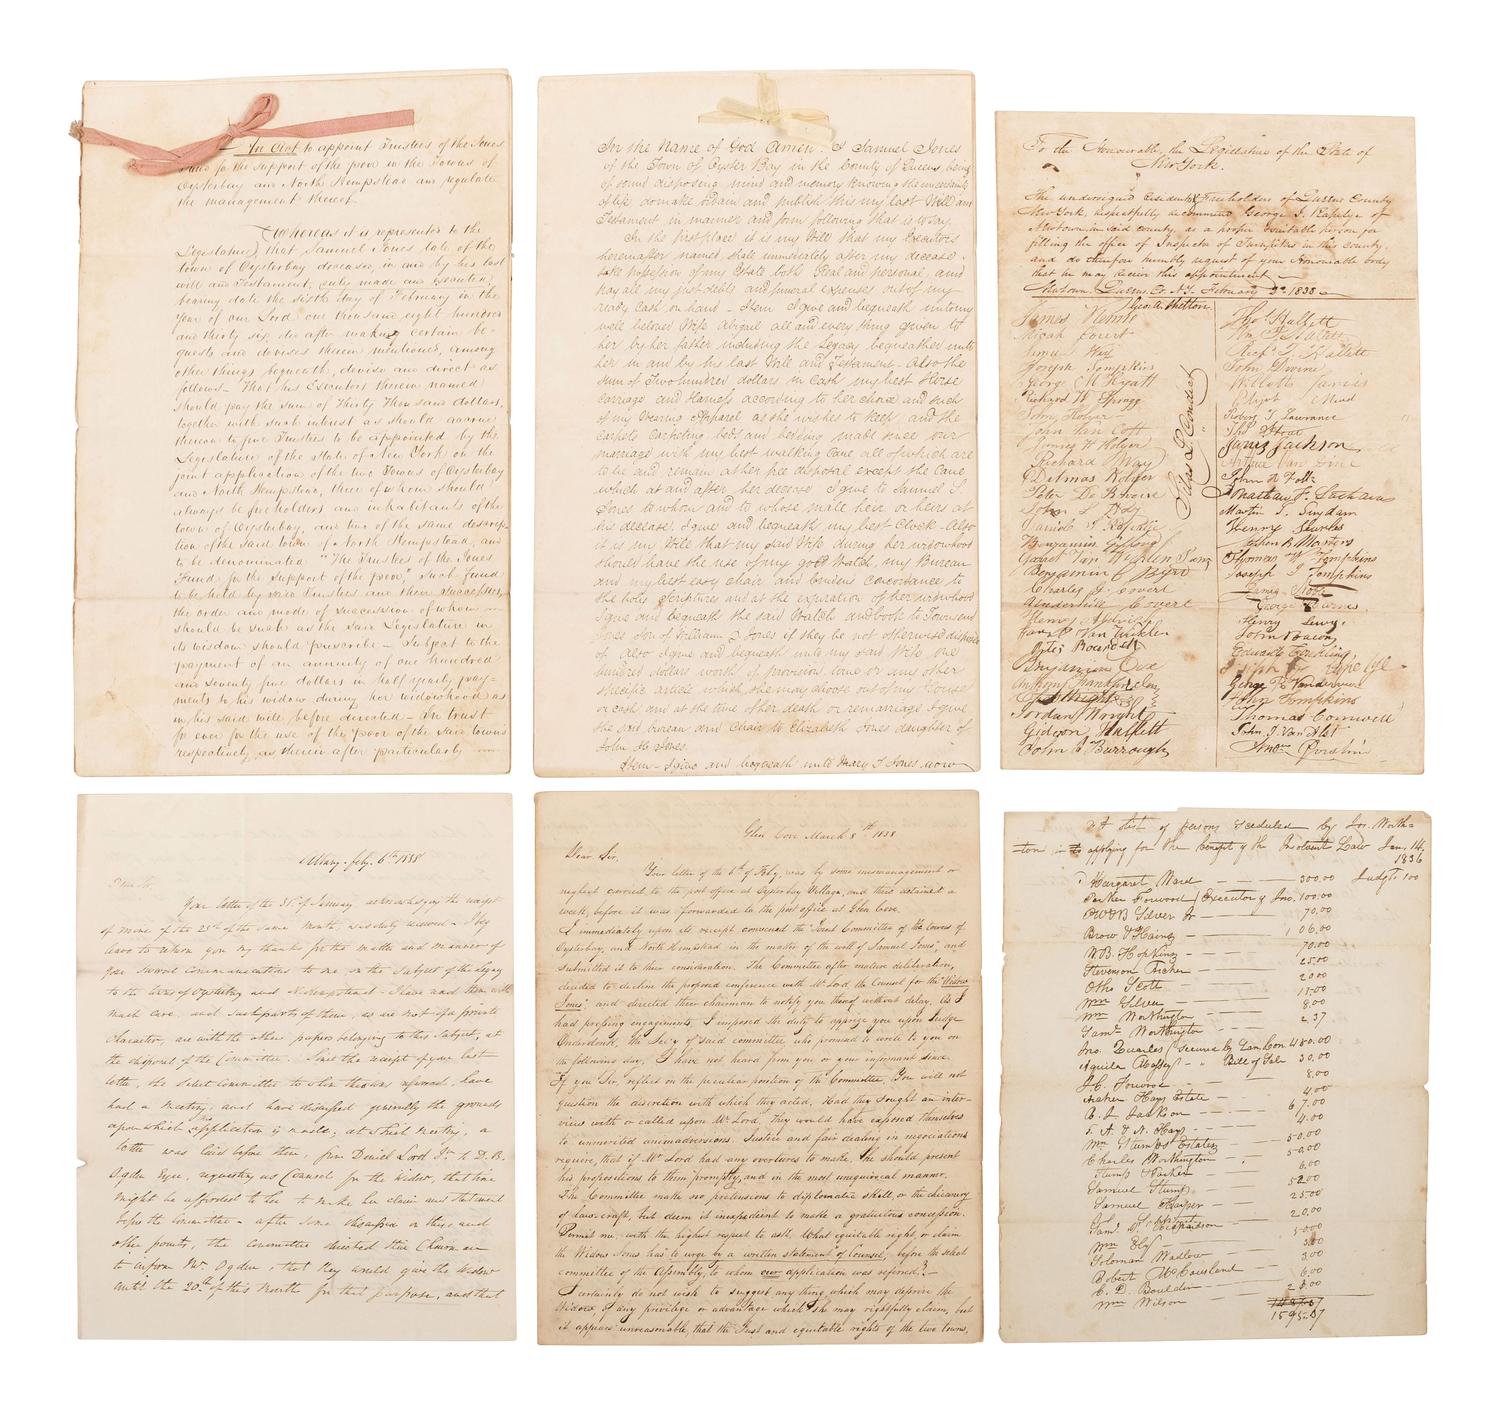 An Act to appoint Trustees of the Jones
Fund for the support of the poor in the Towns of
Oysterbay and North Hempstead and regulate
the management thereof.
Whereas it is represented to the
Legislature, that Samuel Jones late of the
town of Oysterbay deceased, in and by his last
will and Testament, duly made and executed,
bearing date the sixth day of February in the
Year of our Lord one thousand eight hundred
and thirty six, did after making certain be-
quests and devises therein mentioned, among
other things bequeath, devise and direct as
follows - That his Executors therein named
should pay the sum of Thirty Thousand dollars,
together with such interest as should accrue
thereon to five Trustees to be appointed by the
Legislature of the state of New York on the
joint application of the two Towns of Oysterbay
and North Hempstead, three of whom should
always be freeholders and inhabitants of the
town of Oysterbay, and two of the same descrip-
tion of the said town of North Hempstead, and
to be denominated "The Trustees of the Jones
Fund for the support of the poor," such fund
to be held by said Trustees and their successors,
the order and mode of succession of whom
should be such as the said Legislature in
its wisdom should prescribe - Subject to the
payment of an annuity of one hundred
and seventy five dollars in half yearly pay-
ments to his widow during her widowhood as
in his said will before directed - In trust
for ever for the use of the poor of the said towns
respectively, as herein after particularly
In the Name of God Amen. I Samuel Jones
of the Town of Oyster Bay in the County of Queens being
of sound disposing mind and memory knowing the uncertainty
of life do make ordain and publish this my last Will and
Testament in manner and form following that is to say
In the first place it is my Will that my Executors
hereinafter named, shall immediately after my decease
take possession of my Estate both Real and personal, and
pay all my just debts and funeral expenses out of my
ready Cash on hand - Item I give and bequeath unto my
well beloved Wife Abigail all and every thing given to
her by her father including the Legacy bequeathed unto
her in and by his last Will and Testament - Also the
sum of Two hundred dollars in Cash my best Horse
Carriage and Harness according to her choice and such
of my Wearing Apparel as she wishes to keep, and the
carpets carpeting beds and bedding made since our
marriage with my best walking Cane all of which are
to be and remain at her free disposal except the Cane
which at and after her decease I give to Samuel S.
Jones to whom and to whose male heir or heirs at
his decease, I give and bequeath my best Clock - Also
it is my Will that my said Wife during her widowhood
should have the use of my gold Watch, my Bureau
and my best easy chair and Crudens Concordance to
the holy Scriptures and at the expiration of her widowhood
I give and bequeath the said Watch and book to Townsend
Jones Son of William S Jones if they be not otherwise disposed
of Also I give and bequeath unto my said Wife one
hundred dollars worth of provision one or any other
specific article which she may choose out of my House
or cash and at the time of her death or remarriage I give
the said bureau and Chair to Elizabeth Jones daughter of
John H Jones.
Item - I give and bequeath unto Mary T Jones now
To the Honourable, the Legislature of the State of
New York.
The undersigned Residents & Freeholders of Queens County
New York, respectfully recommend George I. Rapelye of
Newtown, in said county, as a proper & suitable person for
filling the office of Inspector of Turnpikes in this county,
and do therefore humbly request of your Honourable body
that he may receive this appointment
Newtown, Queens Co. N.Y. February 3d 1838
James
Micah Covert
Samuel Way
Joseph Tompkins
George M
Richard W. Spragg
John
John Van Cott
James W
Richard Way
Ditmas
Peter De Bevoise
John L
Daniel
Benjamin
Garret Van
Benjamin C
Charles G Covert
Underhill Covert
Henry
Van Wickler
Benjamin Cox
Anthony
Wright
Jordan Wright
Gideon Hallett
John I Burroughs
Silas L. Conduct
Thos. Hallett
Wm. F Hallett
Richd. T. Hallett
John Devine
Willett Jarvis
Elijah Mead
Robert T. Lawrance
James Jackson
Arthur Van Dine
John A Folk
Jonathan F.
Martin I. Suydam
Henry
John B Masters
Thomas W Tompkins
Joseph I Tompkins
James
George Burns
Henry Lewis
John Bacon
Edward
George R Vanderveer
John Tompkins
Thomas Cornwell
John, I. Van Alst
Simon
Albany - Feby. 6th 1838
Dear Sir,
Your letter of the 31st of January acknowledging the receipt
of mine of the 23d of the same month, is duly received - I beg
leave to return you my thanks for the matter and manner of
your several communications to me, on the subject of the Legacy
to the towns of Oysterbay and N. Hempstead - I have read them with
much care, and such parts of them, as are not of a private
character, are with the other papers belonging to this subject, at
the disposal of the Committee. Since the receipt of your last
letter, the select committee to whom this was referred, have
had a meeting, and have discussed generally the grounds
upon which this application is made; at which meeting, a
letter was laid before them, from Daniel Lord Jr. to D. B.
Ogden Esqr. requesting as Counsel for the Widow, that time
might be afforded to her to make her claim and statement
before the committee - after some discussion on this, and
other points, the committee directed their Chairman
to inform Mr. Ogden, that they would give the Widow
until the 20th of this Month for that purpose, and that
Glen Cove March 8th 1838
Dear Sir,
Your letter of the 6th of Feby. was by some mismanagement or
neglect carried to the post office at Oysterbay Village, and there detained a
week, before it was forwarded to the post office at Glen Cove.
I immediately upon its receipt convened the "Joint Committee of the towns of
Oysterbay, and North Hempstead in the matter of the will of Samuel Jones" and
submitted it to their consideration. The Committee after mature deliberation,
decided to decline the proposed conference with Mr Lord, the Counsel for the "Widow
Jones" and directed their chairman to notify you thereof without delay. As I
had pressing engagements, I imposed the duty to apprize you upon Judge
Underdonk, the Secy of said committee who promised to write to you on
the following day, I have not heard from you or your informant since.
If you Sir, reflect on the peculiar position of the Committee, You will not
question the discretion with which they acted. Had they sought an inter-
view with or called upon Mr Lord, They would have exposed themselves
to unmerited animadversions. Justice and fair dealing in negociations
require, that if Mr Lord had any overtures to make, He should present
his propositions to them promptly, and in the most unequivocal manner.
The Committee make no pretensions to diplomatic skill, or the chicanery
of law-craft, but deem it inexpedient to make a gratuitous concession.
Permit me, with the highest respect to ask, What equitable right, or claim
the Widow Jones has to urge by a written statement of Counsel, before the select
committee of the Assembly, to whom our application was referred? -
I certainly do not wish to suggest any thing which may deprive the
Widow of any privilege or advantage which she may rightfully claim, but
it appears unreasonable, that the Just and equitable rights of the two towns,
A list of persons scedulled by Jos. Worth=
=ton in applying for the benefit of the Insolvent Law Jan, 14,
1836
Margaret Ward 300.00 Judgt. 100
Parker Forwood / Executor of Jno. 100.00
O W & B Silver Jr 70.00
Brow & Haines 106.00
W.B. Hopkins 70.00
Stevenson Archer 25.00
Otho Scott 20.00
Wm Silver 15.00
Wm Worthington 8.00
Saml. Worthington 2.37
Jno. Quarles (secured by Van Coon 480.00
Aquila Massey - " Bill of Sale 30.00
J.C. Forwood 8.00
Archer Hays Estate 4.00
A. J. Jackson 67.00
T. A. & N. Hays 4.00
Wm Stumps Estate 50.00
Charles Worthington 50.00
Stump & Parker 6.00
Samuel Stump 52.00
Samuel Hopper 25.00
Saml. D. Richardson 20.00
Wm Ely 5.00
Soloman Wadlow 3.00
Robert McCausland 3.00
C. D. Bouldin 6.00
Wm Wilson
1595.07